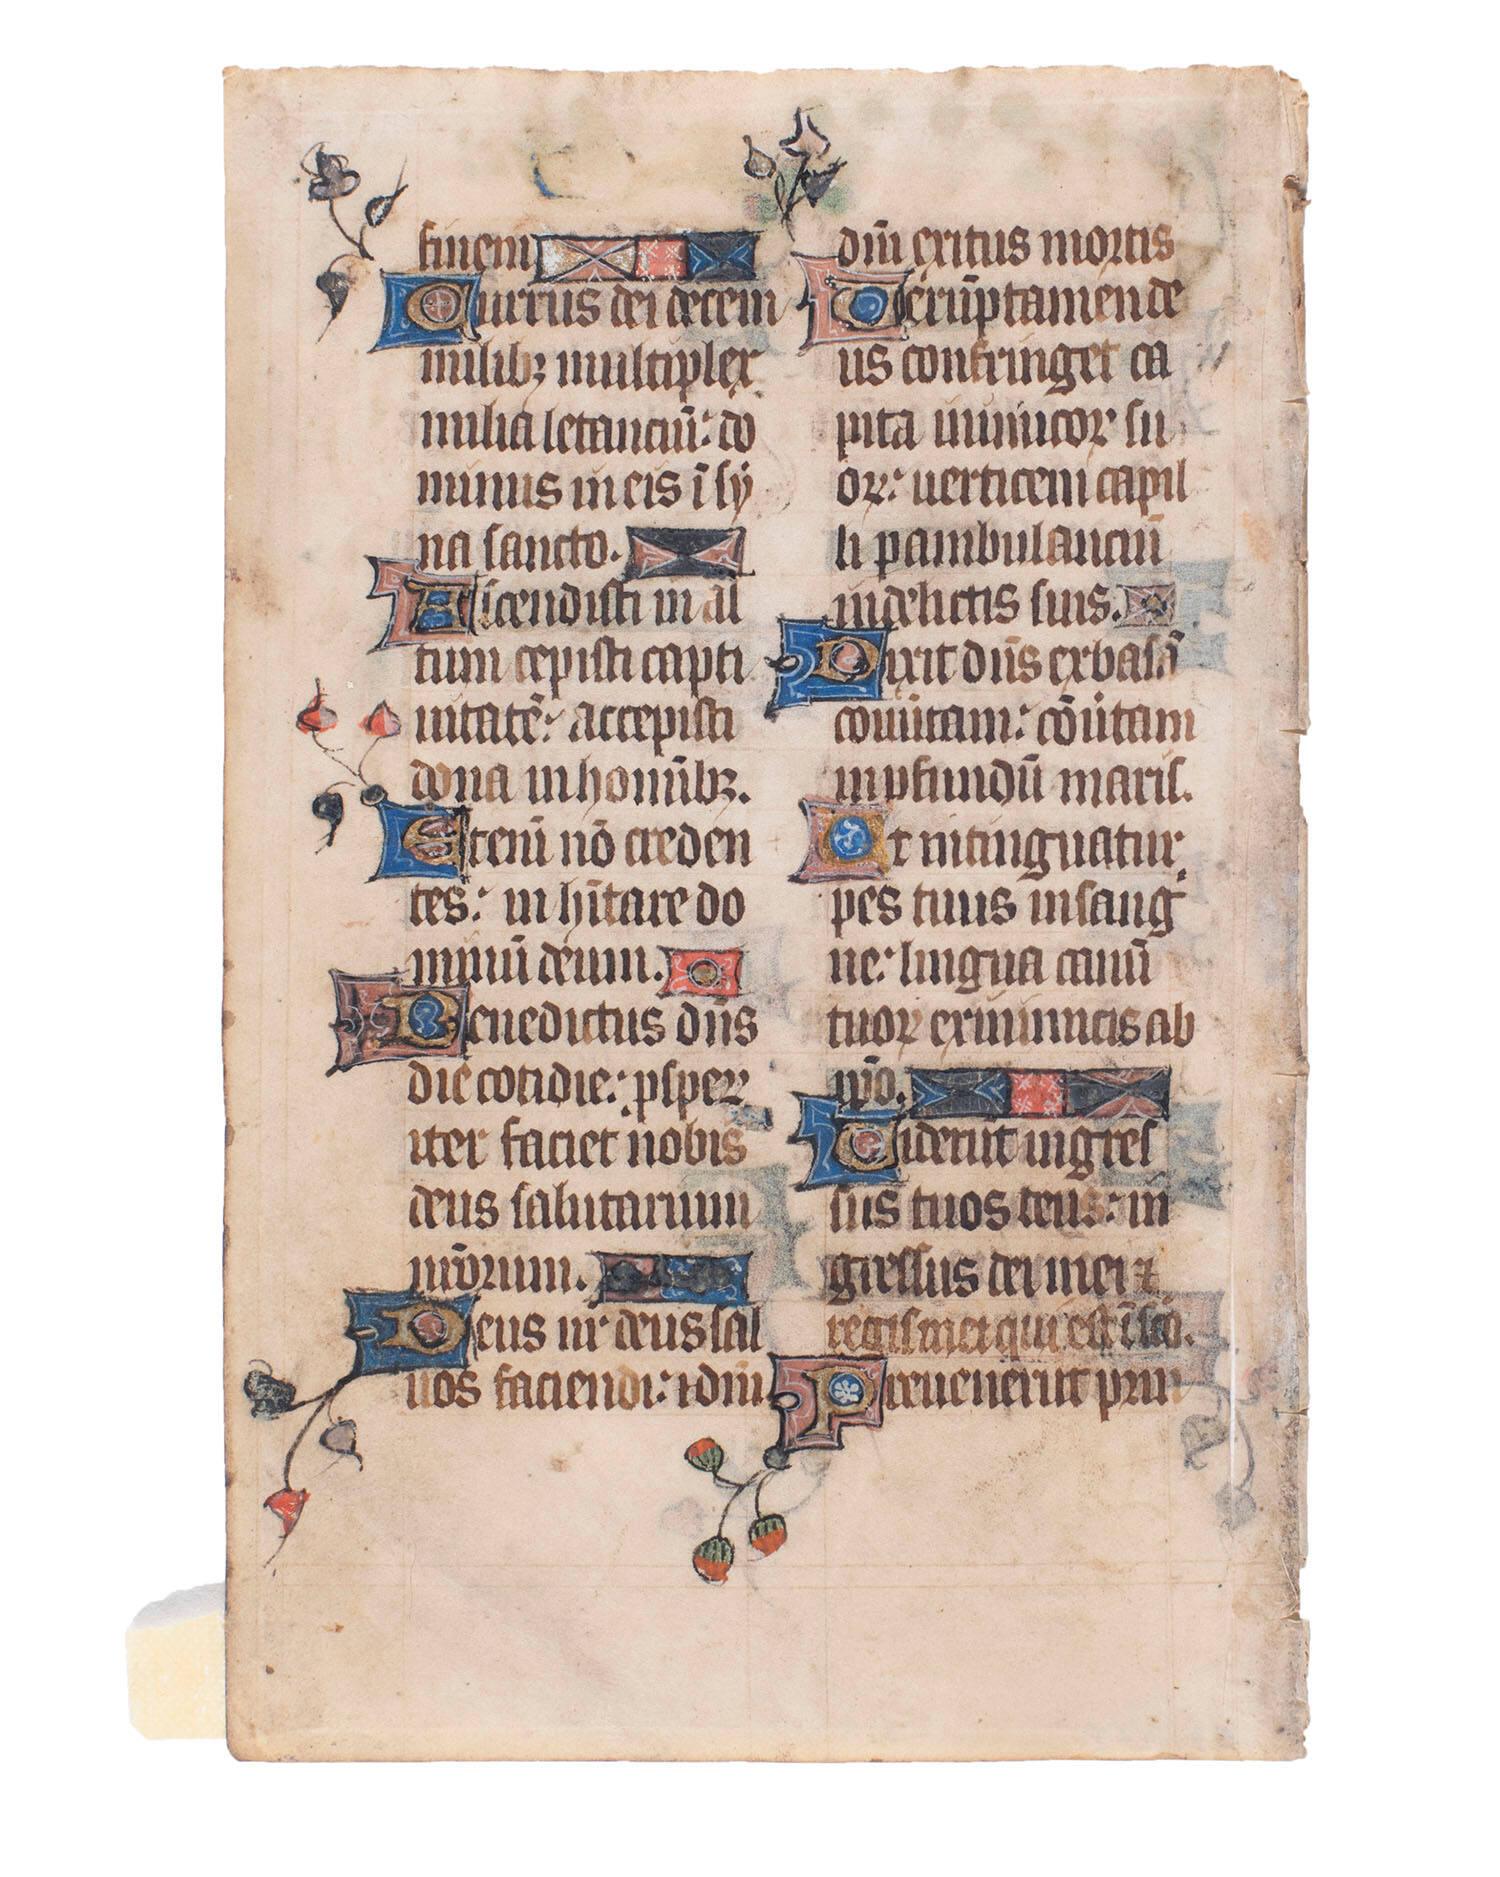 finem
Currus dei decem
milibꝫ multiplex
milia letanciū: do
minus in eis ī sy
na sancto.
Ascendisti in al
tum cepisti capti
uitatē: accepisti
dona in hominībꝫ.
Etenī nō creden
tes: inhītare do
minū deum.
Benedictus dn̄s
die cotidie: ꝓsper
iter faciet nobis
deus salutarium
nr̄orum.
Deus nr̄ deus sal
uos faciendi: ⁊ dn̄i
dn̄i exitus mortis
Uerūptamen de
us confringet ca
pita inimicoꝝ su
oꝝ: uerticem capil
li ꝑambulanciū
in delictis suis.
Dixit dn̄s ex basā
conūtam: cōūtam
in ꝓfundū maris.
Ut intinguatur
pes tuus in sang
ne: lingua canū
tuoꝝ ex inimicis ab
ip̄o.
Uiderūt ingres
sus tuos deus: in
gressus dei mei ⁊
regis mei qui est ī sc̄o.
Preuenerūt prin